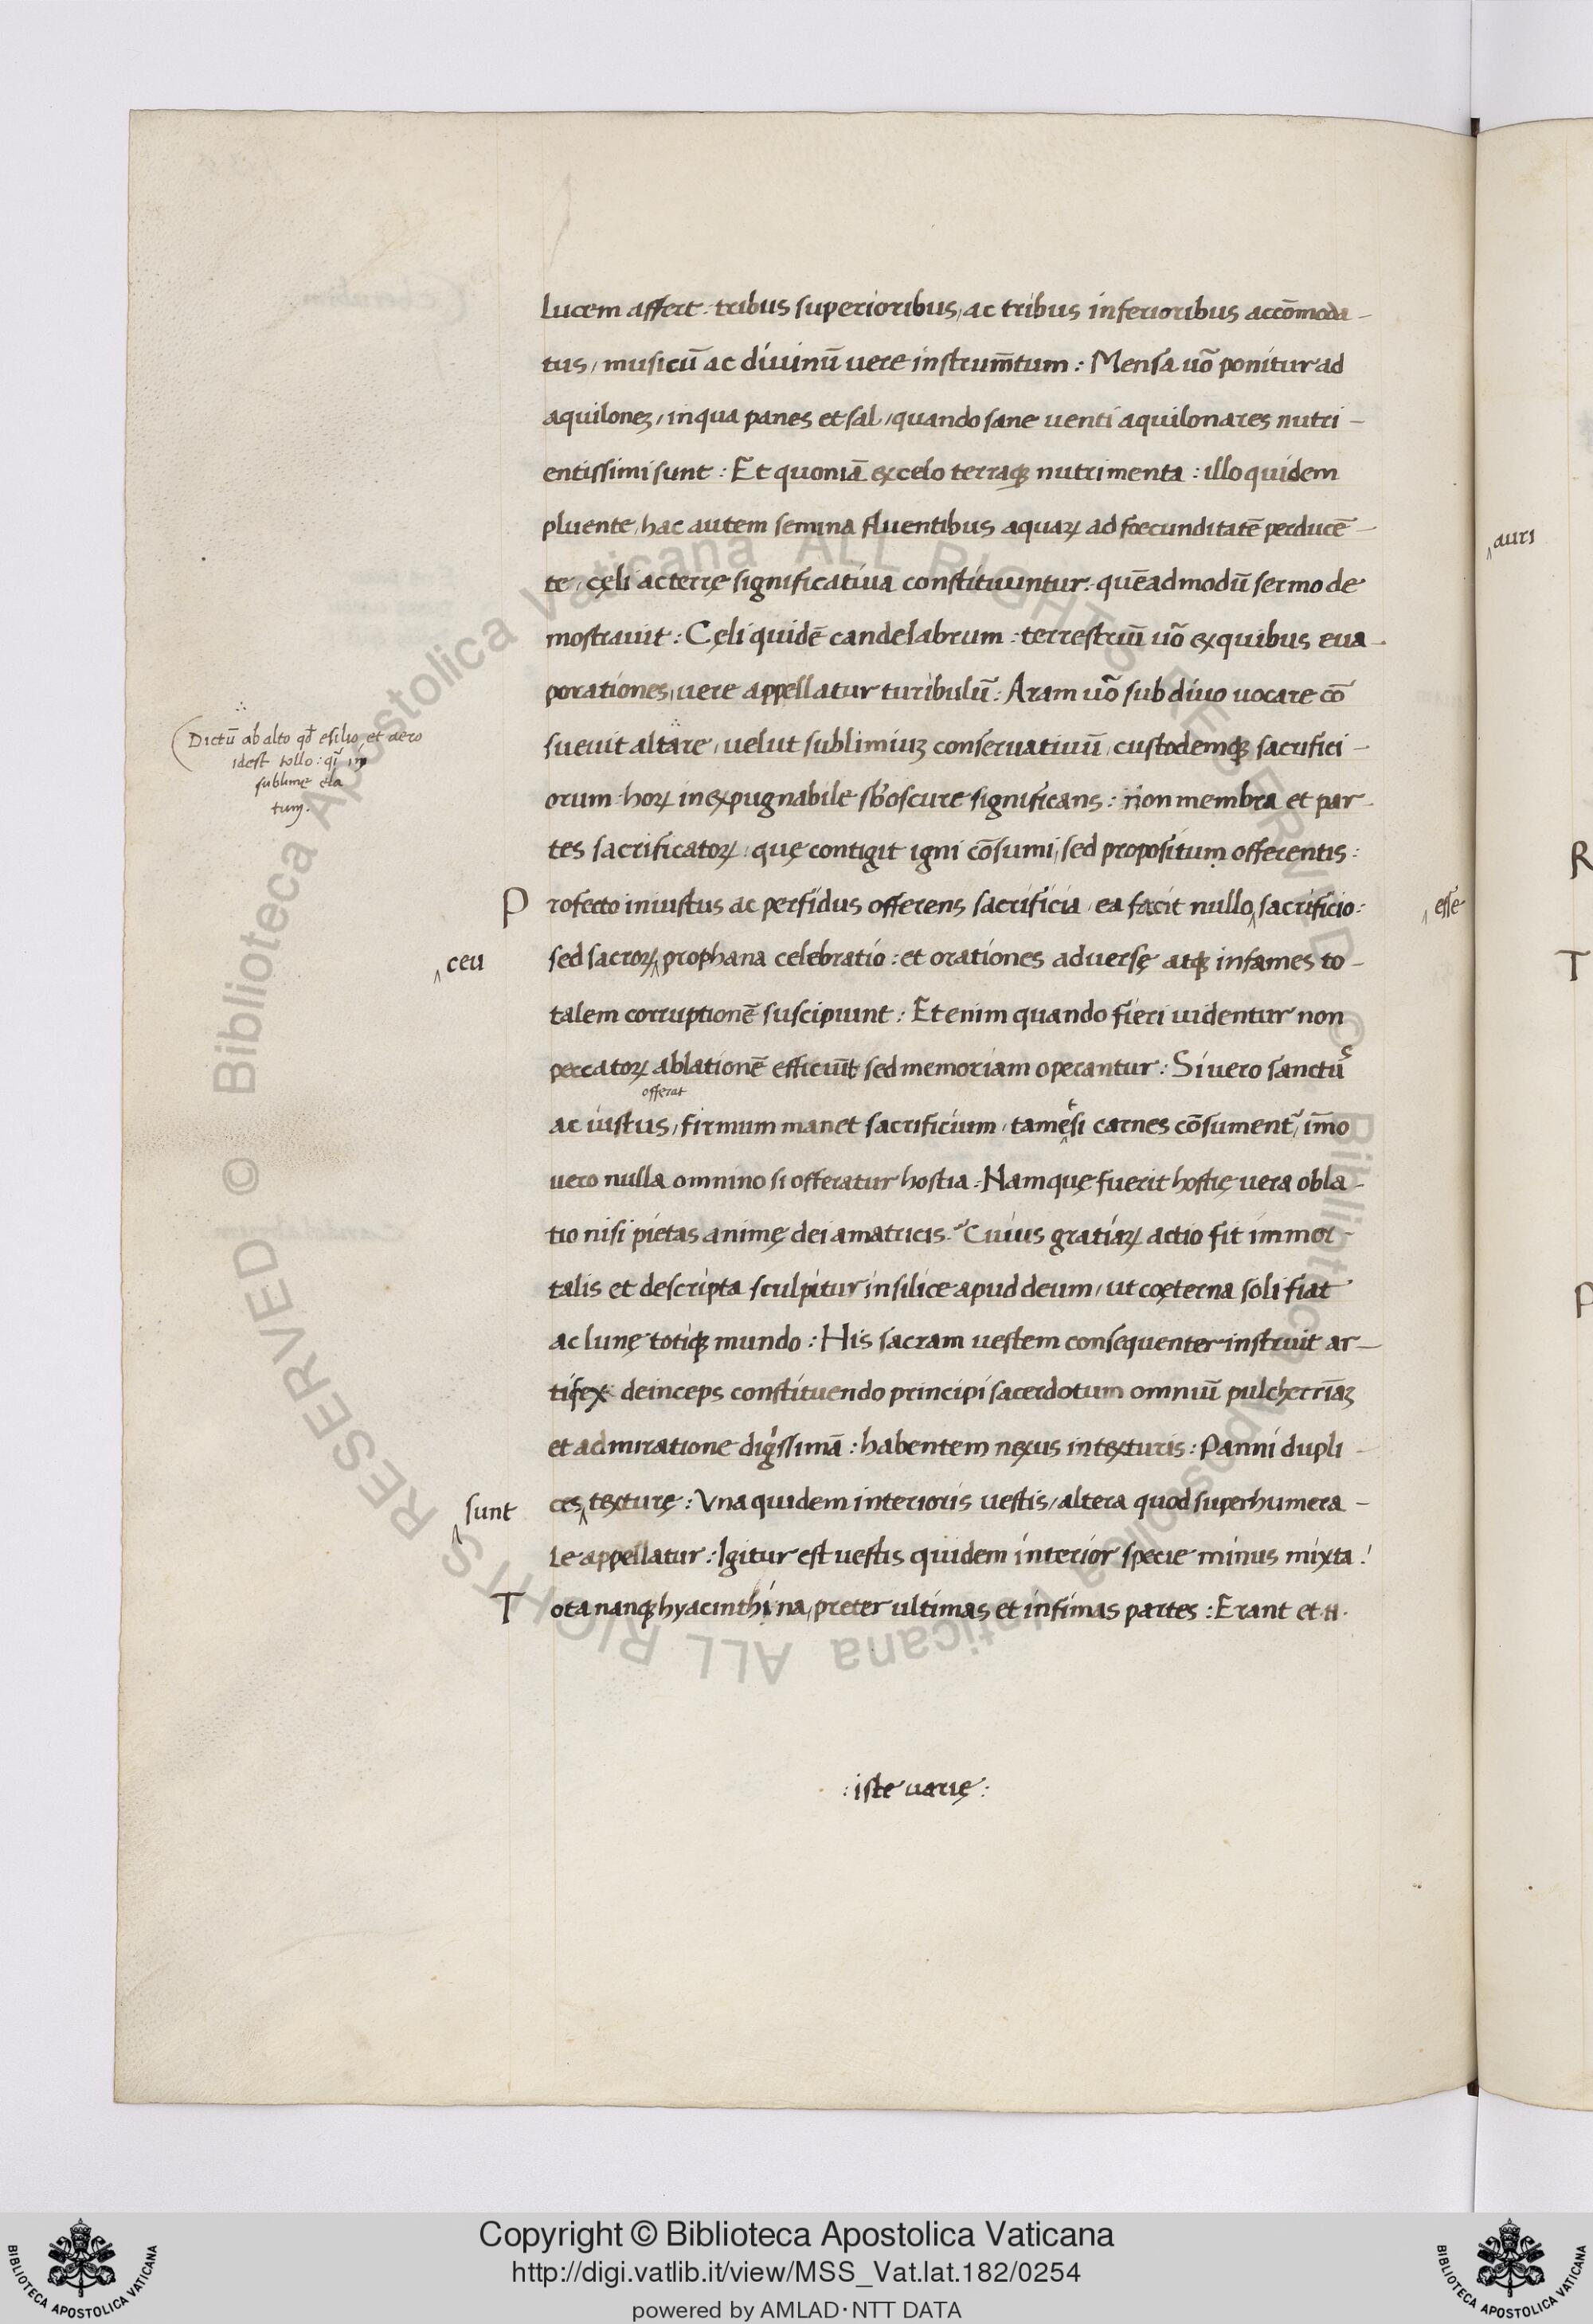 lucem affert: tribus superioribus, ac tribus inferioribus accōmoda-
tus, musicū ac diuinū uere instrum̄tum: Mensa uō ponitur ad
aquiloneʒ, in qua panes et sal, quando sane uenti aquilonares nutri-
entissimi sunt: Et quoniā ex celo terraqꝫ nutrimenta: illo quidem
pluente, hac autem semina fluentibus aquaꝝ ad foecunditatē perducē-
te, cęli ac terrę significatiua constituuntur: quēadmodū sermo de
mostrauit: Cęli quidē candelabrum: terrestriū uō ex quibus eua-
porationes, uere appellatur turibulū: Aram uō sub diuo uocare cō
Dictū ab alto qđ esilio, et aero
idest tollo: qi̇̄ iɲ
sublime ela
tum.
sueuit altare, uelut sublimiuʒ conseruatiuū, custodemqꝫ sacrifici-
orum hoꝝ inexpugnabile sƀoscure significans: non membra et par-
tes sacrificatoꝝ: quę contigit igni cōsumi, sed propositum offerentis:
Profecto iniustus ac perfidus offerens sacrificia, ea facit nullo‸ sacrificio:
‸ esse
‸ ceu
sed sacroꝝ‸ prophana celebratio: et orationes aduersę atqꝫ infames to-
talem corruptionē suscipiunt: Etenim quando fieri uidentur non
peccatoꝝ ablationē efficiūt sed memoriam operantur: Si uero sanctus
offerat
ac iustus, firmum manet sacrificium, tametsi carnes cōsument᷑, im̄o
uero nulla omnino si offeratur hostia. Nam quę fuerit hostię uera obla-
tio nisi pietas animę dei amatricis. Cuius gratiaꝝ actio fit immor-
talis et descripta sculpitur in silice apud deum, ut coęterna soli fiat
ac lunę totiqꝫ mundo: His sacram uestem consequenter instruit ar-
tifex deinceps constituendo principi sacerdotum omniū pulcherrīaʒ
et admiratione digissimā: habentem nexus in texturis: Panni dupli-
‸ sunt
ces‸ texturę: Vna quidem interioris uestis, altera quod superhumera-
le appellatur: Igitur est uestis quidem interior specie minus mixta:
Tota nanqꝫ hyacinthina, preter ultimas et infimas partes: Erant et
: iste uarię :
‸ auri
R
T
P
Biblioteca Apostolica Vaticana ALL RIGHTS RESERVED ©
Biblioteca Apostolica Vaticana ALL RIGHTS RESERVED ©
Copyright © Biblioteca Apostolica Vaticana
http://digi.vatlib.it/view/MSS_Vat.lat.182/0254
powered by AMLAD·NTT DATA
BIBLIOTECA APOSTOLICA VATICANA
BIBLIOTECA APOSTOLICA VATICANA